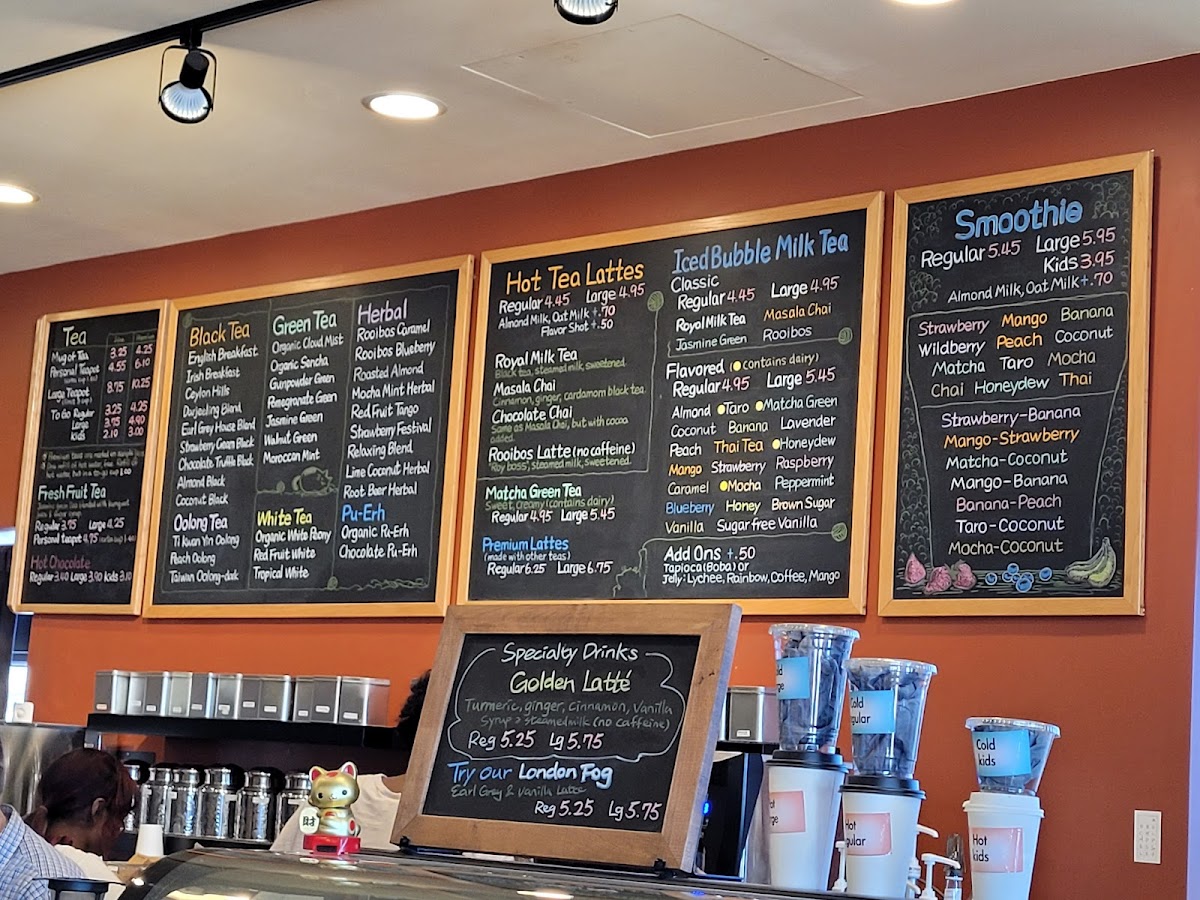 Tea
Mug of Tea 3.25 4.25
Personal Teapot 4.55 6.10
Large Teapot 8.75 10.25
To Go Regular 3.25 4.25
Large 3.75 4.90
Kids 2.10 3.00
Fresh Fruit Tea
Regular 3.75 Large 4.25
Personal teapot 4.75
Hot Chocolate
Regular 3.40 Large 3.90 Kids 3.10
Black Tea
English Breakfast
Irish Breakfast
Ceylon Hills
Darjeeling Blend
Earl Grey House Blend
Strawberry Cream Black
Chocolate Truffle Black
Almond Black
Coconut Black
Oolong Tea
Ti Kuan Yin Oolong
Peach Oolong
Taiwan Oolong-dark
Green Tea
Organic Cloud Mist
Organic Sencha
Gunpowder Green
Pomegranate Green
Jasmine Green
Walnut Green
Moroccan Mint
White Tea
Organic White Peony
Red Fruit White
Tropical White
Herbal
Rooibos Caramel
Rooibos Blueberry
Roasted Almond
Mocha Mint Herbal
Red Fruit Tango
Strawberry Festival
Relaxing Blend
Lime Coconut Herbal
Root Beer Herbal
Pu-Erh
Organic Pu-Erh
Chocolate Pu-Erh
Hot Tea Lattes
Regular 4.45 Large 4.95
Almond Milk, Oat Milk +.70
Flavor Shot +.50
Royal Milk Tea
Black tea, steamed milk, sweetened.
Masala Chai
Cinnamon, ginger, cardamom black tea.
Chocolate Chai
Same as Masala Chai, but with cocoa
added.
Rooibos Latte (no caffeine)
"Roy boss", steamed milk, sweetened.
Matcha Green Tea
Sweet, creamy (contains dairy)
Regular 4.95 Large 5.45
Premium Lattes
(made with other teas)
Regular 6.25 Large 6.75
Iced Bubble Milk Tea
Classic
Regular 4.45 Large 4.95
Royal Milk Tea Masala Chai
Jasmine Green Rooibos
Flavored (contains dairy)
Regular 4.95 Large 5.45
Almond Taro Matcha Green
Coconut Banana Lavender
Peach Thai Tea Honeydew
Mango Strawberry Raspberry
Caramel Mocha Peppermint
Blueberry Honey Brown Sugar
Vanilla Sugar free Vanilla
Add Ons +.50
Tapioca (Boba) or
Jelly: Lychee, Rainbow, Coffee, Mango
Smoothie
Regular 5.45 Large 5.95
Kids 3.95
Almond Milk, Oat Milk +.70
Strawberry Mango Banana
Wildberry Peach Coconut
Matcha Taro Mocha
Chai Honeydew Thai
Strawberry-Banana
Mango-Strawberry
Matcha-Coconut
Mango-Banana
Banana-Peach
Taro-Coconut
Mocha-Coconut
Specialty Drinks
Golden Latté
Turmeric, ginger, cinnamon, vanilla
Syrup & steamed milk (no caffeine)
Reg 5.25 Lg 5.75
Try our London Fog
Earl Grey & Vanilla Latte
Reg 5.25 Lg 5.75
Cold
kids
Hot
kids
財